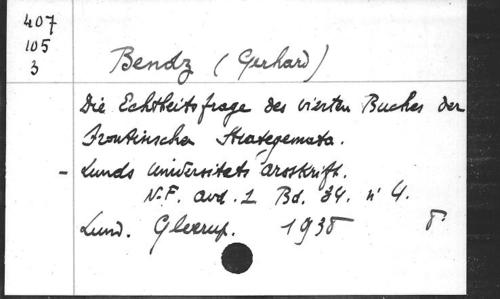 407
105
3
Bendz (Gerhard)
Die Echtheitsfrage des vierten Buches der
Frontinschen Strategemata.
- Lunds Universitets Årsskrift.
N.F. avd. 1 Bd. 34. n° 4.
Lund. Gleerup. 1938 8°